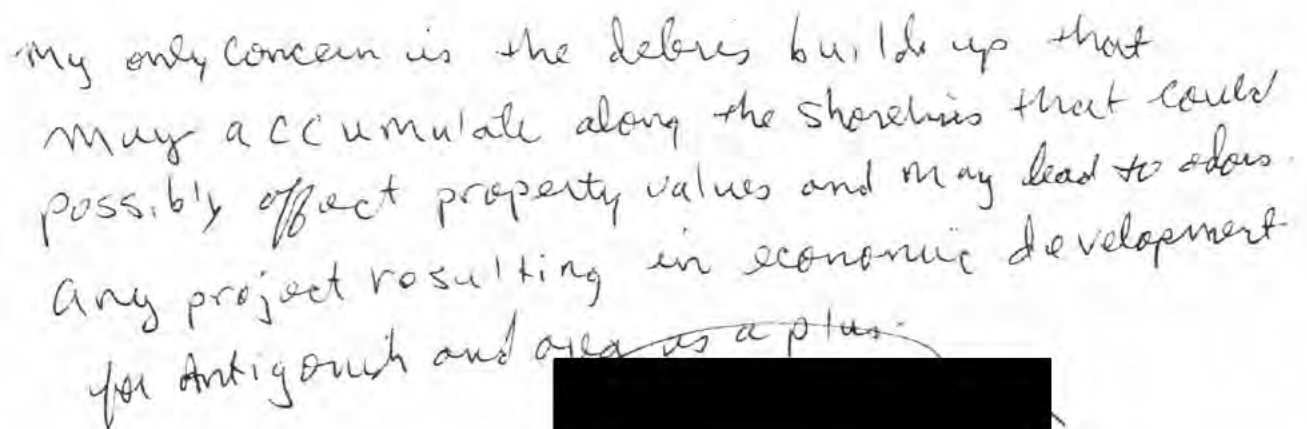 My only concern is the debres build up that
may accumulate along the shorelines that could
possibly effect property values and may lead to odors.
Any project resulting in economic development
for Antigonish and area is a plus.